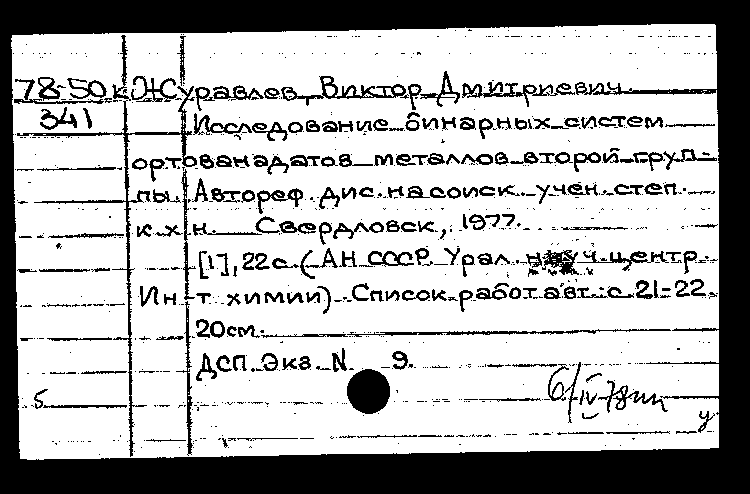 78-50к Журавлев, Виктор Дмитриевич
341 Исследование бинарных систем
ортованадатов металлов второй груп-
пы. Автореф. дис. на соиск. учен. степ.
к. х н. Свердловск, 1977.
[1], 22 с. (АН СССР. Урал. науч. центр.
Ин-т химии). Список работ авт.: с. 21-22.
20см.
ДСП. Экз. N 9.
5
6/IV-78
у